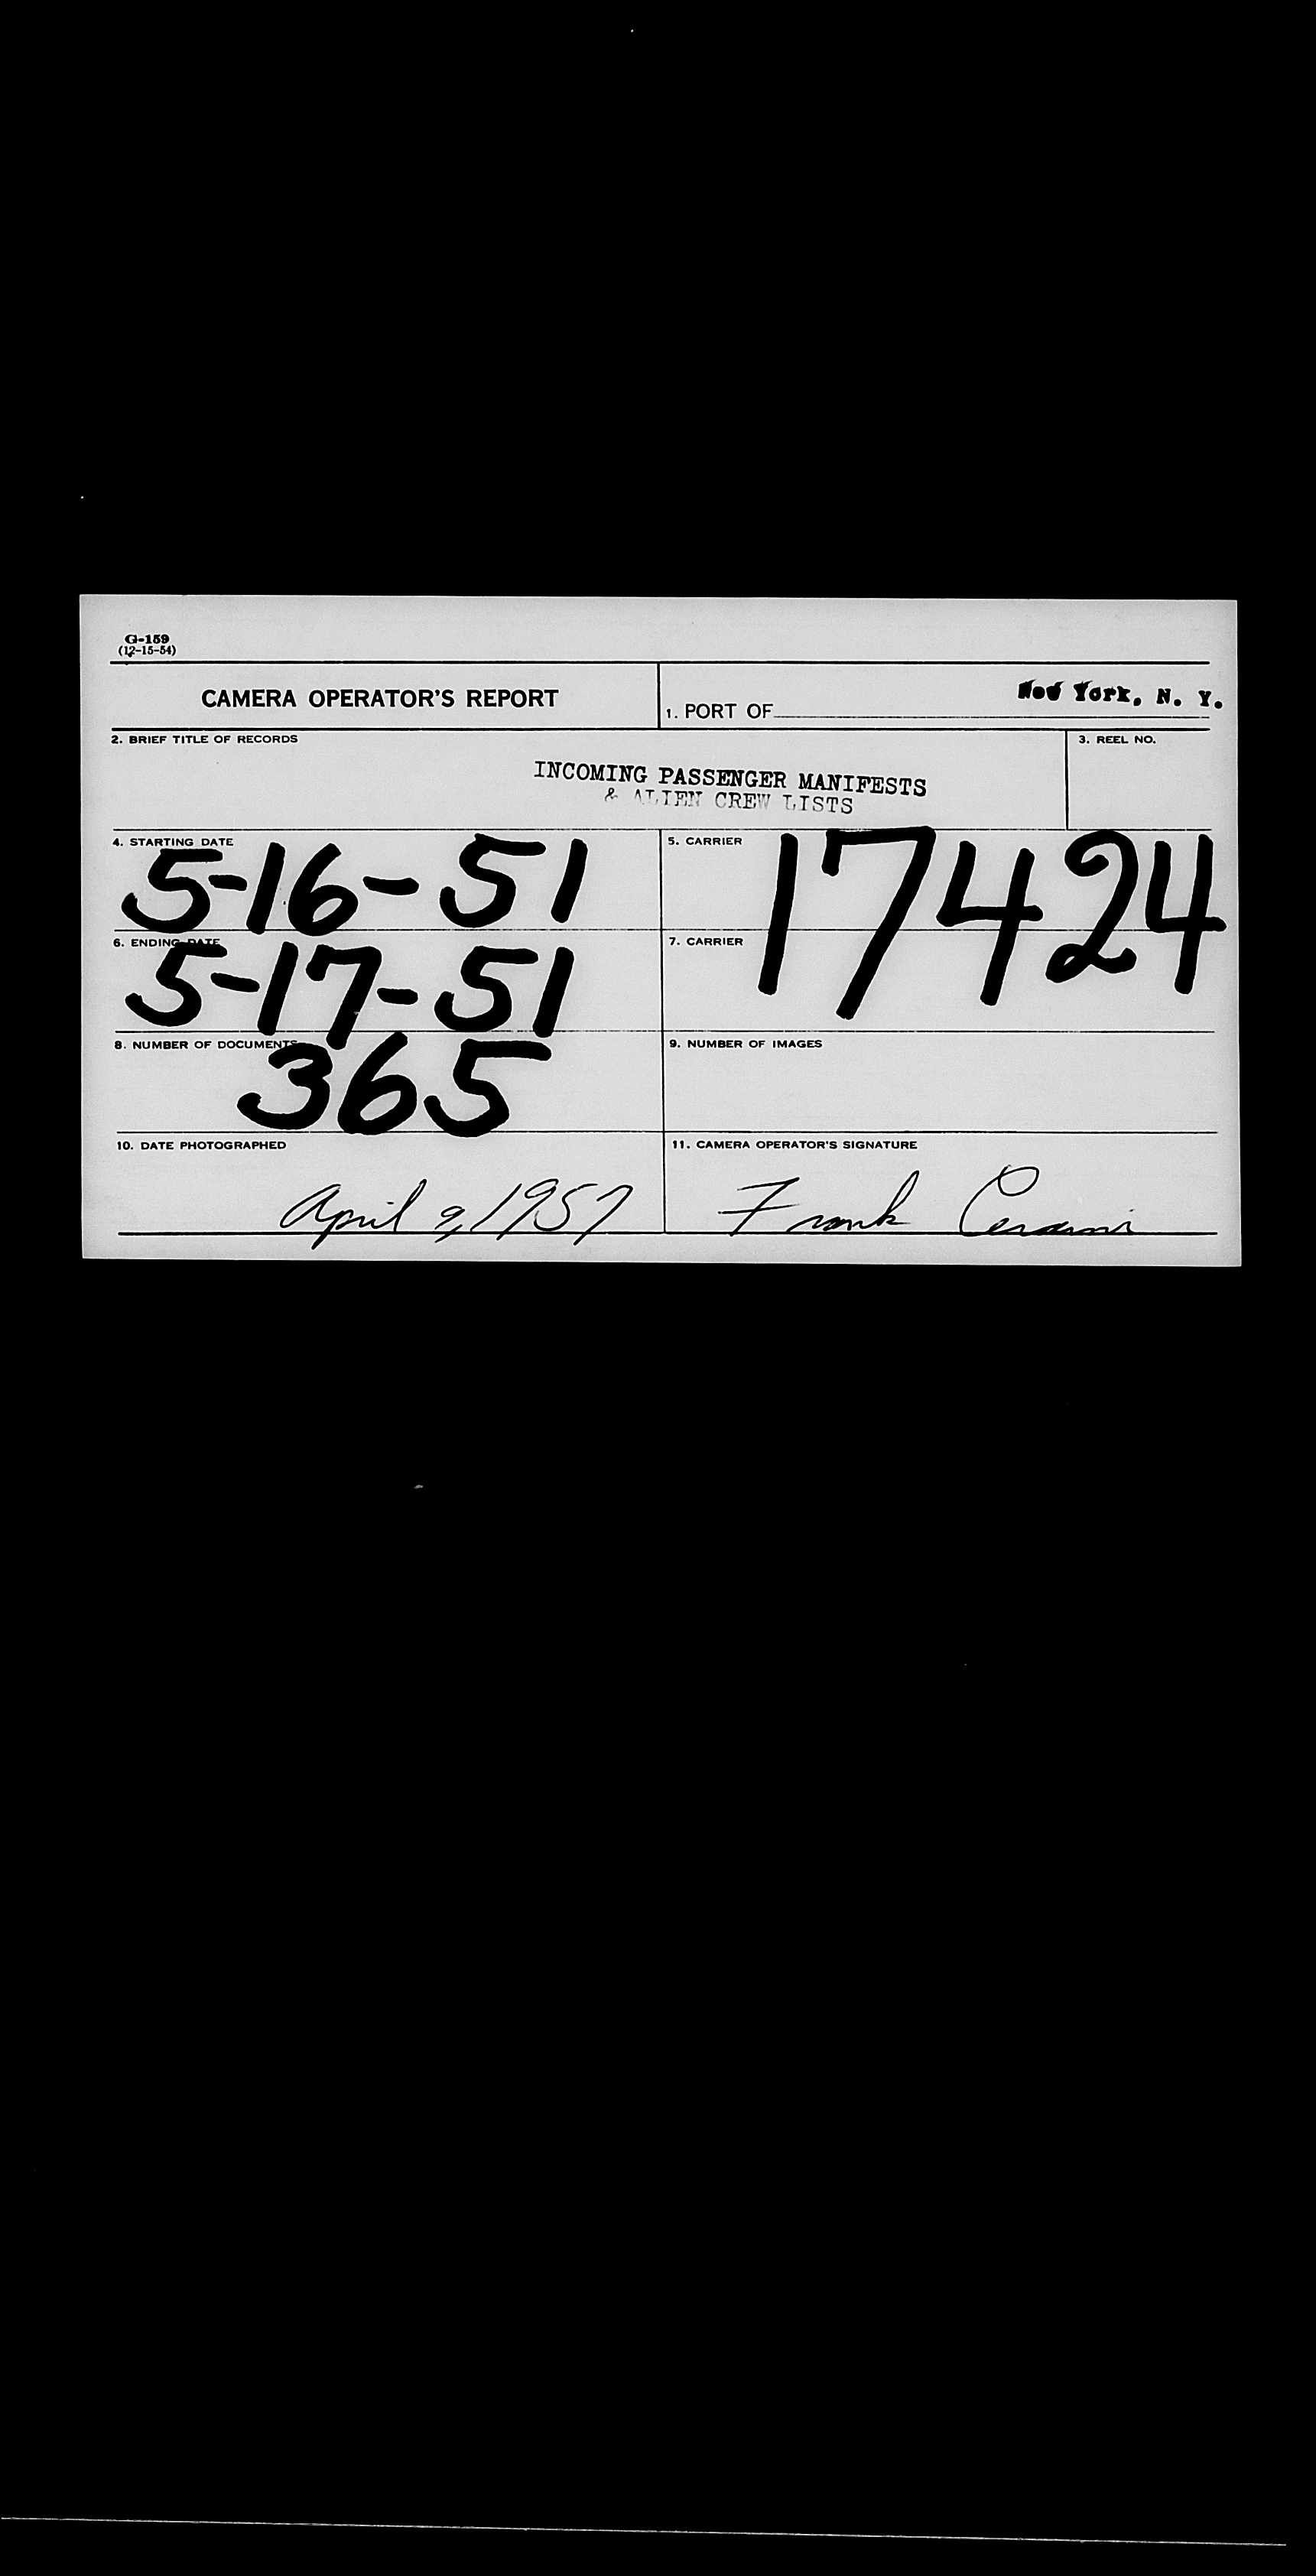 G-159
(12-15-54)
CAMERA OPERATOR'S REPORT
1. PORT OF New York, N. Y.
2. BRIEF TITLE OF RECORDS
3. REEL NO.
INCOMING PASSENGER MANIFESTS
& ALIEN CREW LISTS
4. STARTING DATE
5-16-51
5. CARRIER
17424
6. ENDING DATE
5-17-51
7. CARRIER
8. NUMBER OF DOCUMENTS
365
9. NUMBER OF IMAGES
10. DATE PHOTOGRAPHED
April 9, 1957
11. CAMERA OPERATOR'S SIGNATURE
Frank